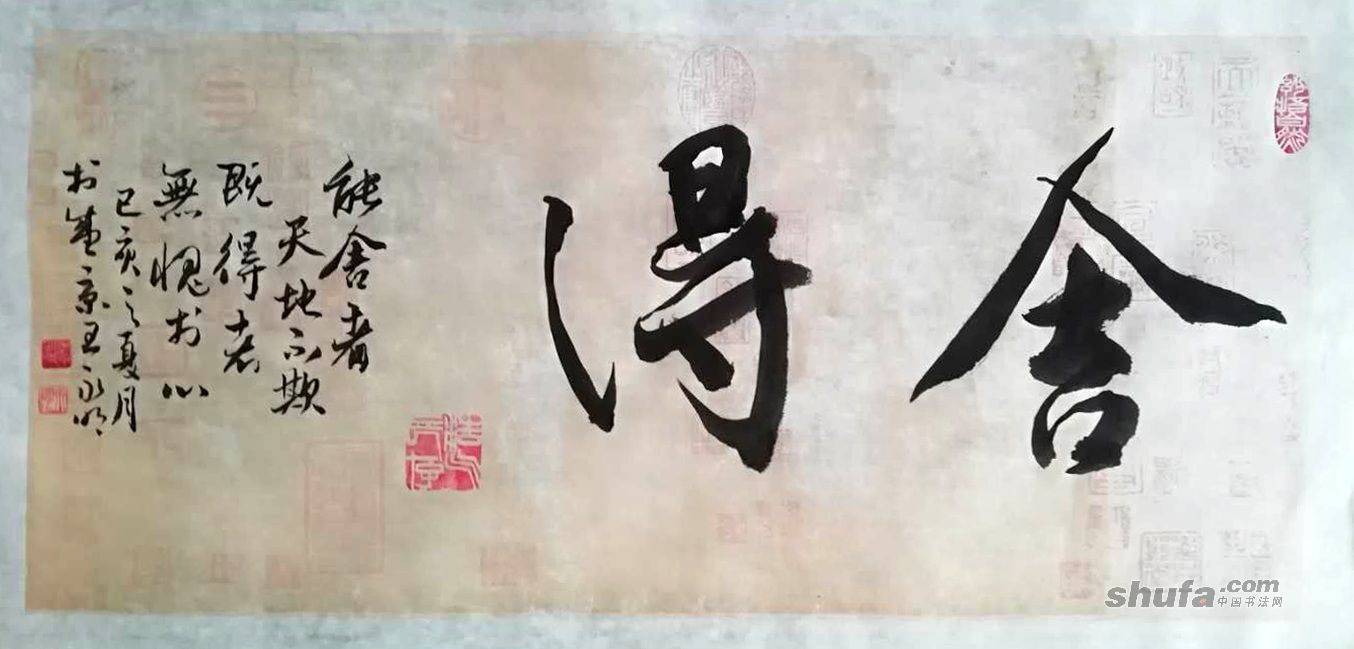 舍得
能舍者
天地不欺
既得者
無愧於心
己亥之夏月
於盛京王永明
shufa.com
中国书法网